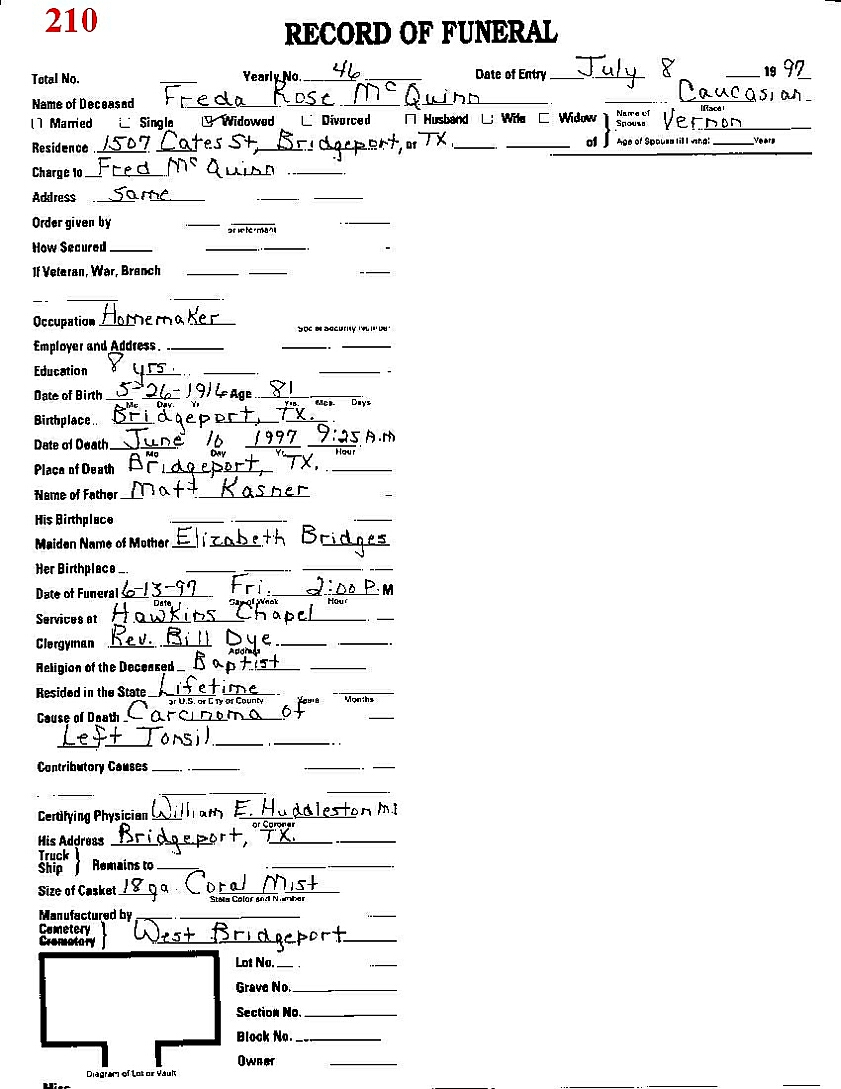 210
RECORD OF FUNERAL
Total No. Yearly No. 46 Date of Entry July 8 1997
Name of Deceased Freda Rose McQuinn Caucasian (Race)
Married Single Widowed Divorced Husband Wife Widow of Name of Spouse Vernon
Residence 1507 Cates St, Bridgeport, or TX. Age of Spouse (if living) Years
Charge to Fred McQuinn
Address Same
Order given by
or informant
How Secured
If Veteran, War, Branch
Occupation Homemaker
Social Security Number
Employer and Address
Education 8 yrs.
Date of Birth 5-26-1916 Age 81
Mo. Day Yr. Yrs. Mos. Days
Birthplace Bridgeport, TX.
Date of Death June 10 1997 9:25 A.M
Mo Day Yr. Hour
Place of Death Bridgeport, TX.
Name of Father Matt Kasner
His Birthplace
Maiden Name of Mother Elizabeth Bridges
Her Birthplace
Date of Funeral 6-13-97 Fri. 2:00 P.M
Date Day of Week Hour
Services at Hawkins Chapel
Clergyman Rev. Bill Dye
Address
Religion of the Deceased Baptist
Resided in the State Lifetime
or U.S. or City or County Years Months
Cause of Death Carcinoma of
Left Tonsil
Contributory Causes
Certifying Physician William E. Huddleston M.D
or Coroner
His Address Bridgeport, TX.
Truck
Ship Remains to
Size of Casket 18 ga. Coral Mist
State Color and Number
Manufactured by
Cemetery
Crematory West Bridgeport
Lot No.
Grave No.
Section No.
Block No.
Owner
Diagram of Lot or Vault